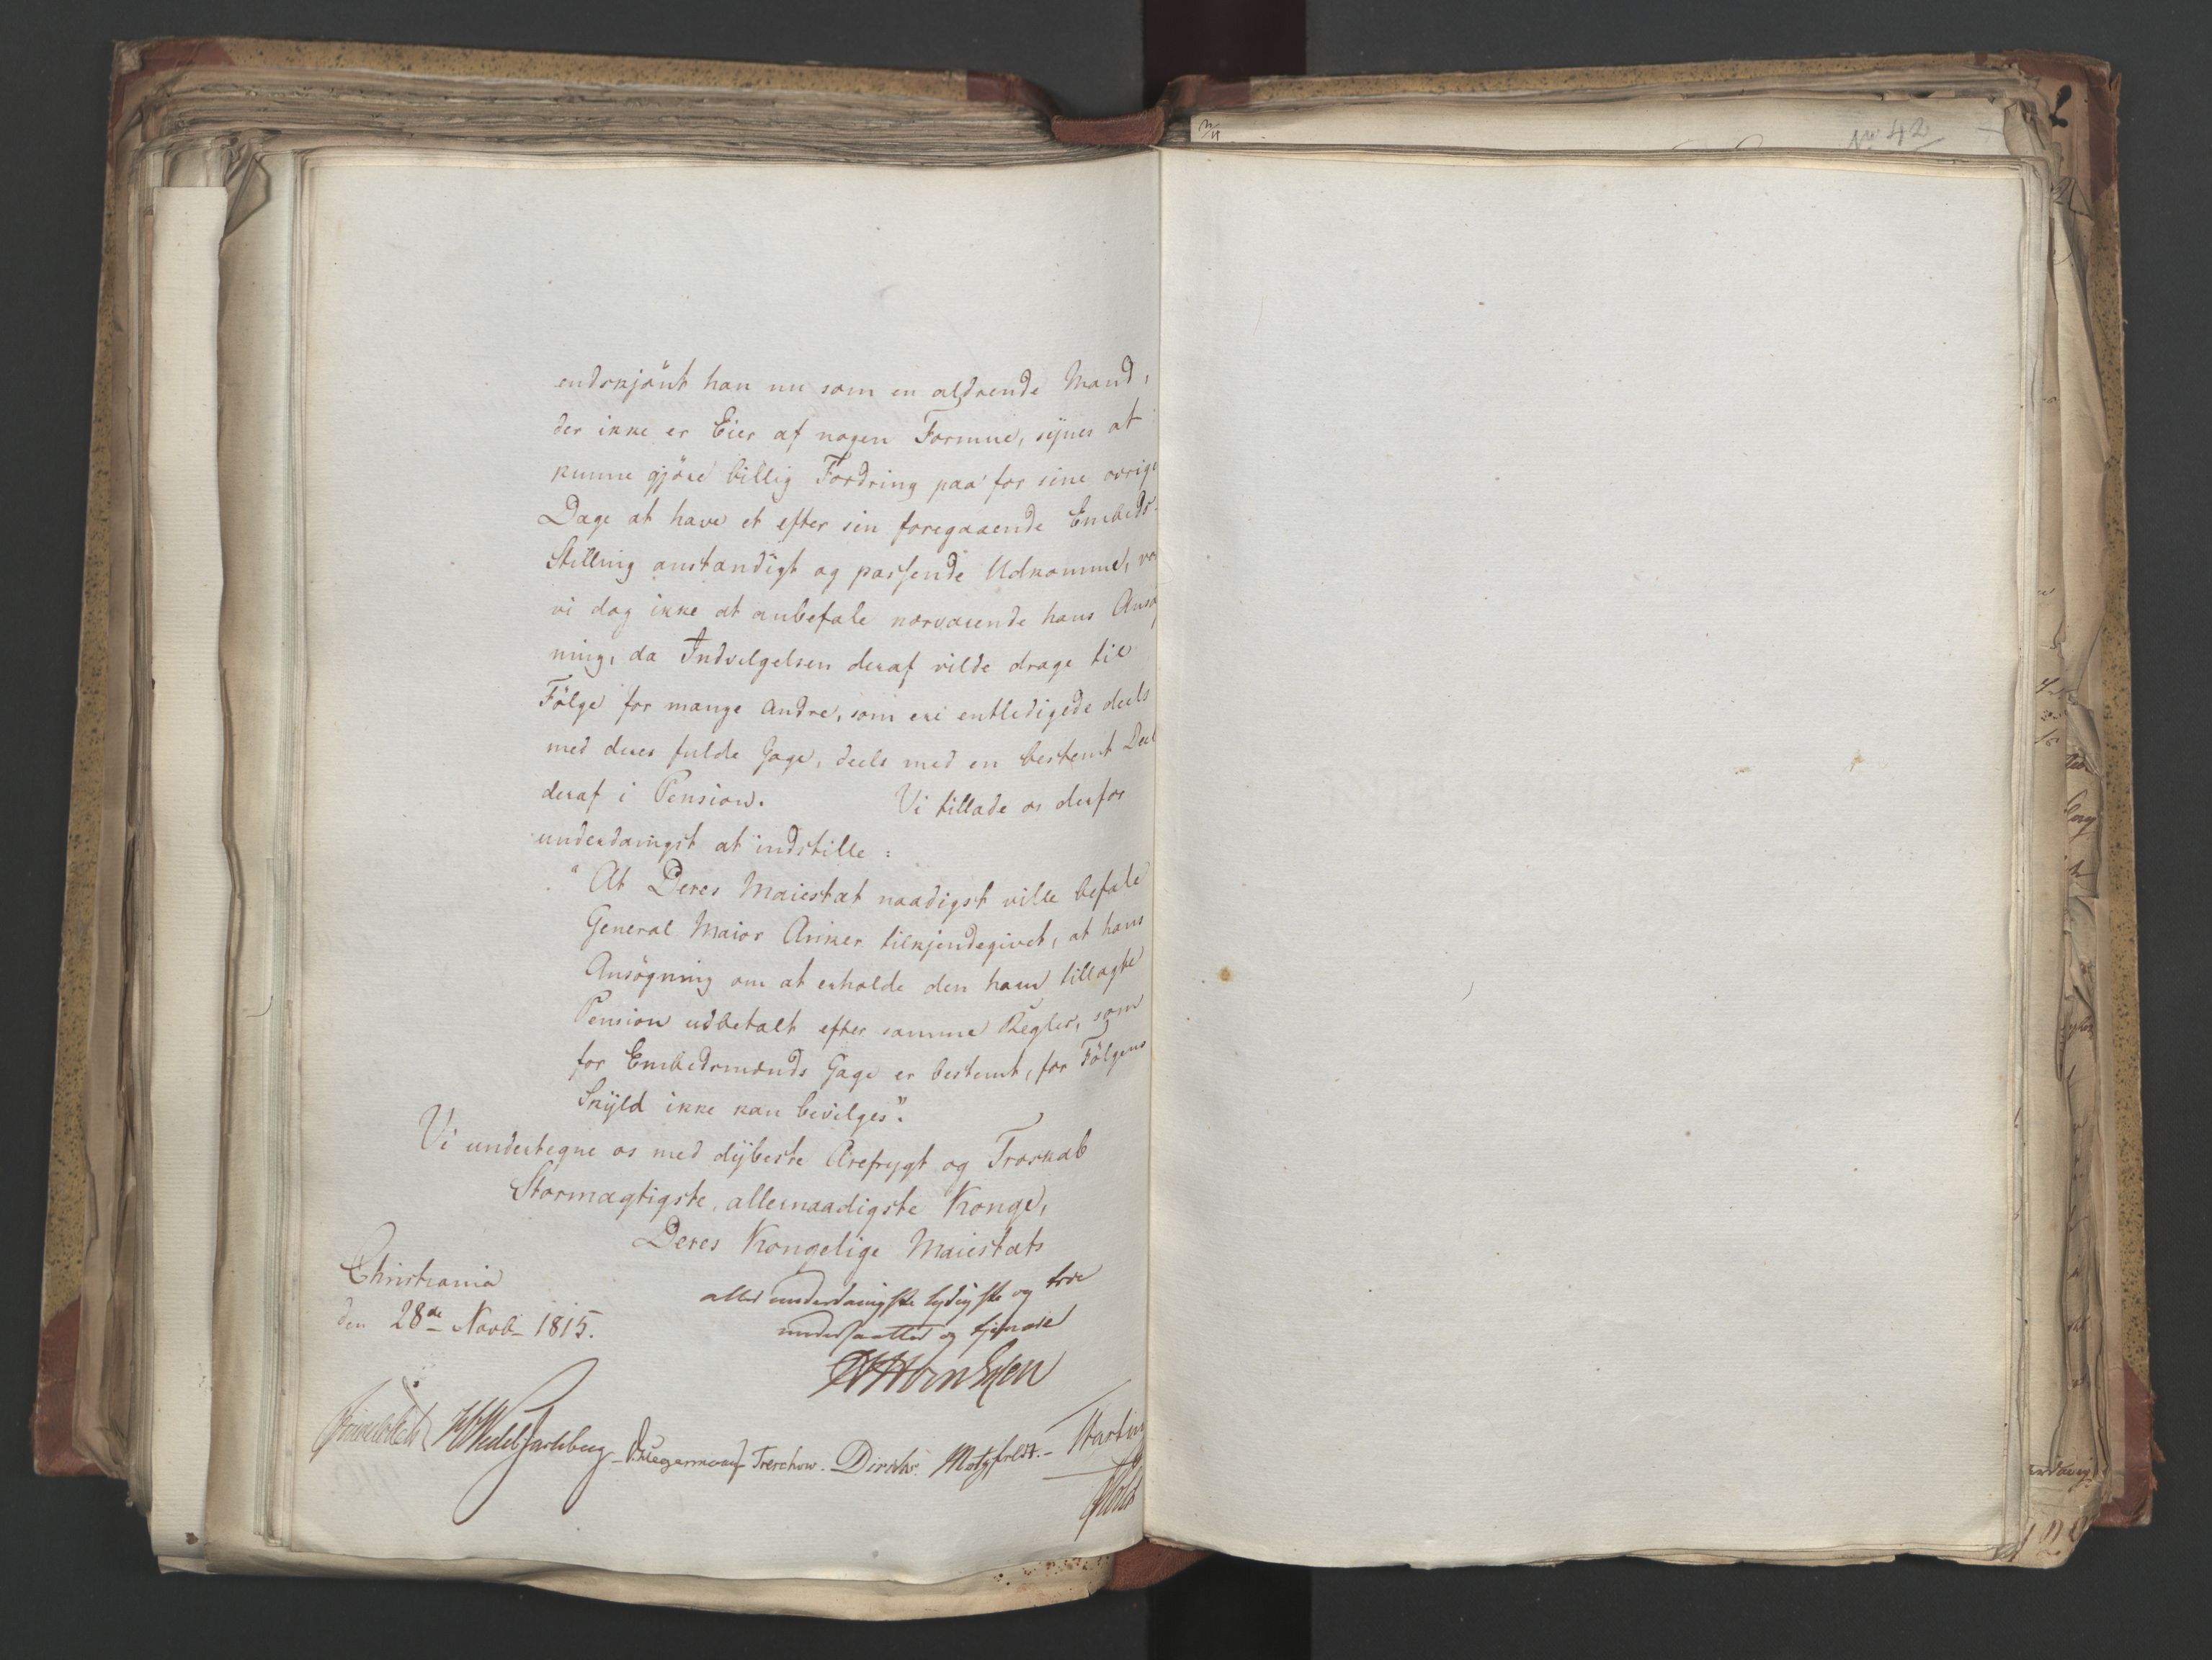 endskjönt han nu som en aldrende Mand,
der ikke er Eier af nogen Formue, synes at
kunne gjöre billig Fordring paa for sine övrige
Dage at have et efter sin foregaaende Embeds-
Stilling anstændigt og passende Udkomme, vo
vi dog ikke at anbefale nærværende hans Ansö
ning, da Indvilgelsen deraf vilde drage til
Fölge for mange Andre, som ere entledigede deels
med deres fulde Gage, deels med en bestemt Deel
deraf i Pension. Vi tillade os derfor
underdanigst at indstille:
"At Deres Maiestæt naadigst ville befale
General Maior Anker tilkjendegivet, at hans
Ansögning om at erholde den ham tillagte
Pension udbetalt efter samme Regler, som
for Embedsmænds Gage er bestemt, for Fölgens
Skyld ikke kan bevilges".
Vi undertegne os med dybeste Ærefrygt og Troskab
Stormægtigste, allernaadigste Konge,
Deres Kongelige Maiestæts
Christiania
den 28de Novb. 1815.
allerunderdanigste lydigste og troe
undersaatter og tjenere
Hornsylen
HWedel Jarlsberg - Krieger - Treschow. Diriks. Motzfeldt. -
Holst
No 42